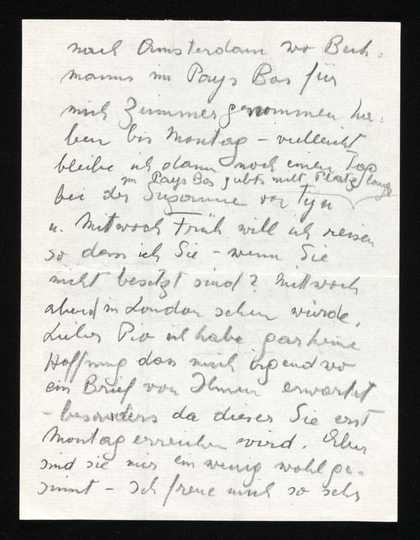 nach Amsterdam wo Beck-
manns im Pays Bas für
mich Zimmer genommen ha-
ben bis Montag – vielleicht
bleibe ich dann noch einen Tag
im Pays Bas gibts nicht Platz länger
bei der Susanne van Tyn
u. Mittwoch Früh will ich reisen
so dass ich Sie – wenn Sie
nicht besetzt sind? Mittwoch
abend in London sehen würde.
Lieber Pio ich habe gar keine
Hoffnung dass mich irgendwo
ein Brief von Ihnen erwartet
– besonders da dieser Sie erst
Montag erreichen wird. Aber
sind sie mir ein wenig wohlge-
sinnt – Ich freue mich so sehr